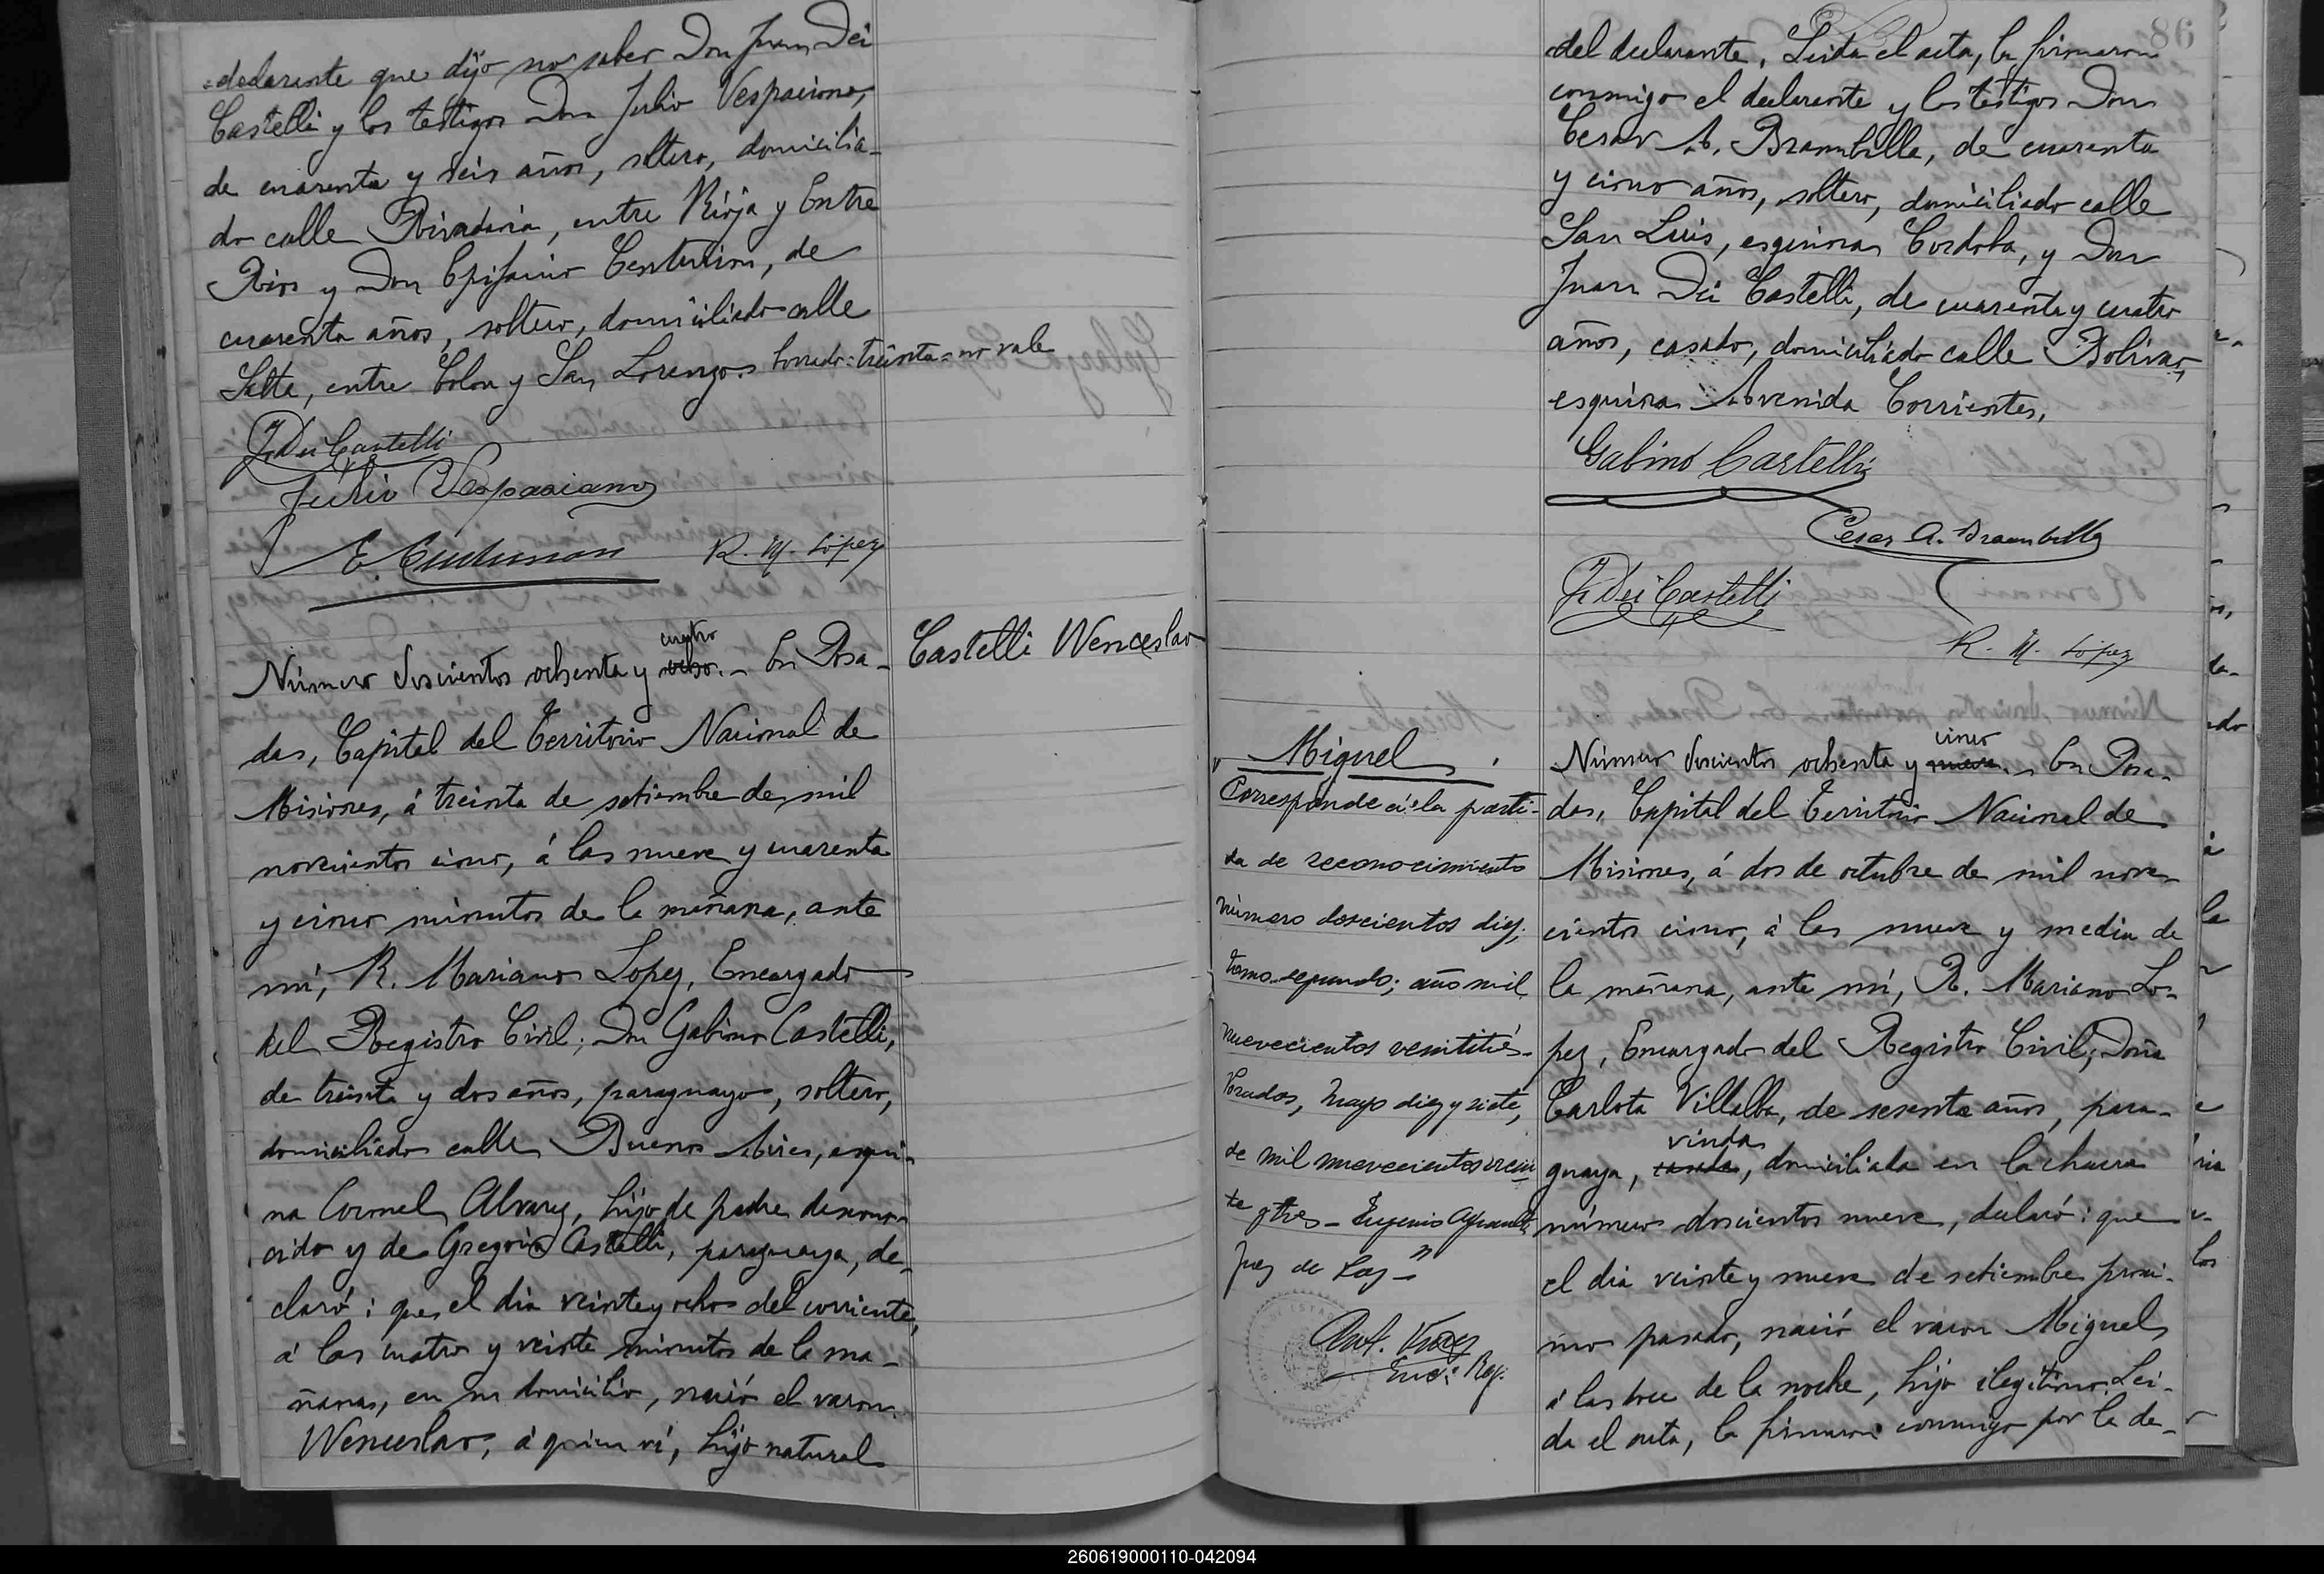 declarante que dijo no saber Don Juan Dei
Castelli y los testigos Don Julio Vespaciano,
de cuarenta y seis años, soltero, domicilia-
do calle Rivadavia, entre Rioja y Entre
Rios y Don Epifanio Centurion, de
cuarenta años, soltero, domiciliado calle
Salta, entre Colon y San Lorenzo. borrado: treinta = no vale
J. Dei Castelli
Julio Vespaciano
E. Centurion R. M. Lopez
Castelli Wenceslao
cuatro
Número doscientos ochenta y ocho. - En Posa-
das, Capital del Territorio Nacional de
Misiones, á treinta de setiembre de mil
novecientos cinco, á las nueve y cuarenta
y cinco minutos de la mañana, ante
mí, R. Mariano Lopez, Encargado
del Registro Civil; Don Gabino Castelli,
de treinta y dos años, paraguayo, soltero,
domiciliado calle Buenos Aires, esqui-
na Coronel Alvarez, hijo de padre descono-
cido y de Gregoria Castelli, paraguaya, de-
claró: que el dia veinte y ocho del corriente,
á las cuatro y veinte minutos de la ma-
ñana, en su domicilio, nació el varon
Wenceslao, á quien vi, hijo natural
86
del declarante. Leida el acta, la firmaron
conmigo el declarante y los testigos Don
Cesar A. Brambilla, de cuarenta
y cinco años, soltero, domiciliado calle
San Luis, esquina Cordoba, y Don
Juan Dei Castelli, de cuarenta y cuatro
años, casado, domiciliado calle Bolivar,
esquina Avenida Corrientes.
Gabino Castelli
Cesar A. Brambilla
J. Dei Castelli
R. M. Lopez
Miguel
Corresponde á la parti-
da de reconocimiento
número doscientos diez,
tomo segundo; año mil
nuevecientos veintitrés-
Posadas, Mayo diez y siete,
de mil nuevecientos vein
te y tres - Eugenio
Juez de Paz -"
Enc: Reg.
cinco
Número doscientos ochenta y nueve. - En Posa-
das, Capital del Territorio Nacional de
Misiones, á dos de octubre de mil nove-
cientos cinco, á las nueve y media de
la mañana, ante mí, R. Mariano Lo-
pez, Encargado del Registro Civil; Doña
Carlota Villalba, de sesenta años, para-
viuda
guaya, casada, domiciliada en la chacra
número doscientos nueve, declaró: que
el dia veinte y nueve de setiembre proxi-
mo pasado, nació el varon Miguel,
á las doce de la noche, hijo ilegítimo. Lei-
da el acta, la firmaron conmigo por la de-
260619000110-042094